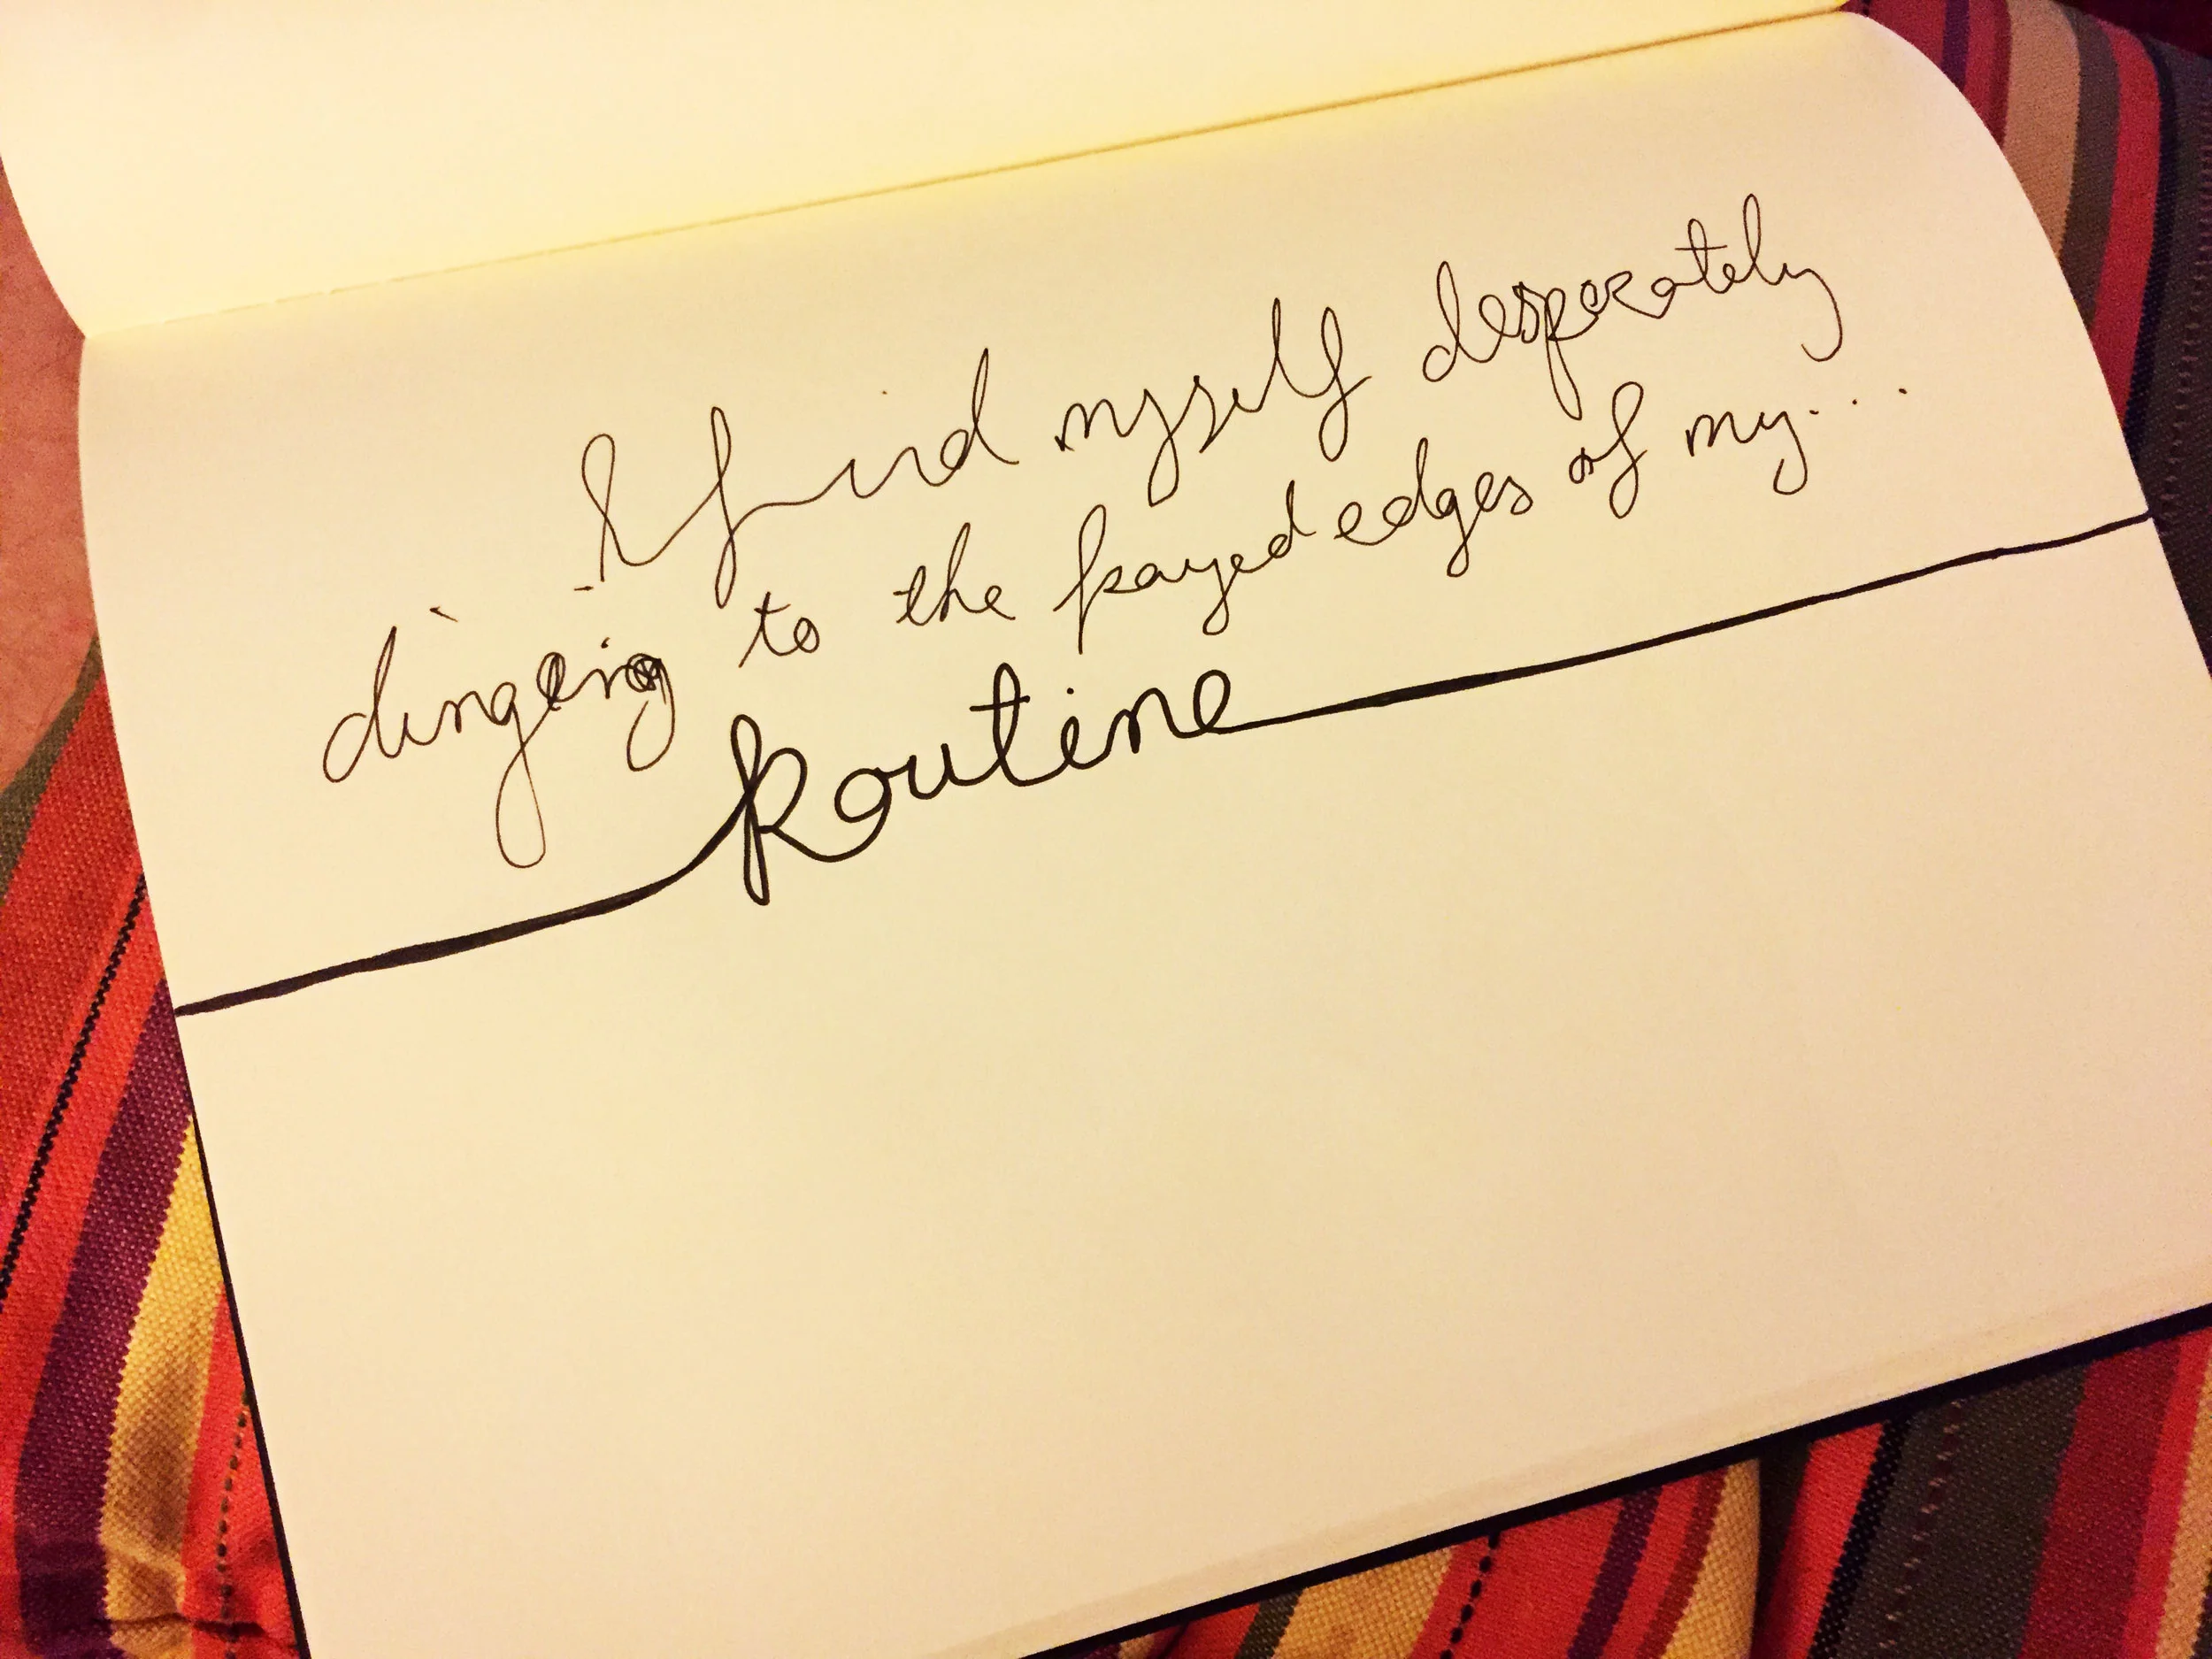 I find myself desperately
clinging to the frayed edges of my...
Routine